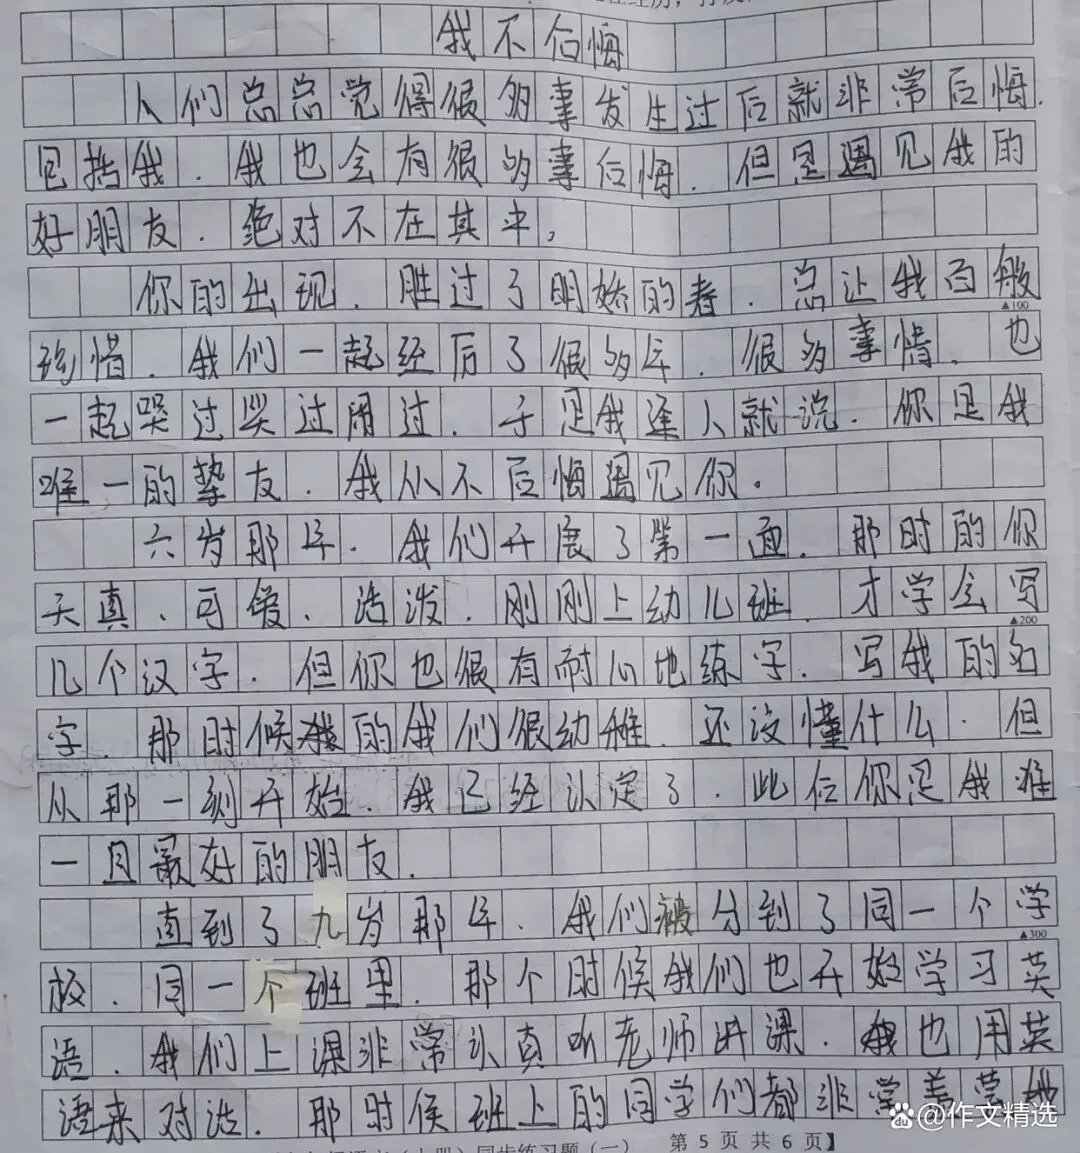 我不后悔
人们总总觉得很多事发生过后就非常后悔.
包括我.我也会有很多事后悔.但是遇见我的
好朋友.绝对不在其中,
你的出现.胜过了明媚的春.总让我百般
珍惜.我们一起经历了很多年.很多事情、也
一起哭过笑过闹过.于是我逢人就说.你是我
唯一的挚友.我从不后悔遇见你。
六岁那年.我们开展了第一面.那时的你
天真、可爱、活泼.刚刚上幼儿班.才学会写
▲100
几个汉字.但你也很有耐心地练字.写我的名
▲200
字.那时候的我们很幼稚.还没懂什么.但
从那一刻开始.我已经认定了.此后你是我唯
一且最好的朋友.
直到了九岁那年.我们被分到了同一个学
校.同一个班里.那个时候我们也开始学习英
▲300
语.我们上课非常认真听老师讲课.我也用英
语来对话.那时候班上的同学们都非常羡慕地
同步练习题(一) 第5页共6页】
@作文精选